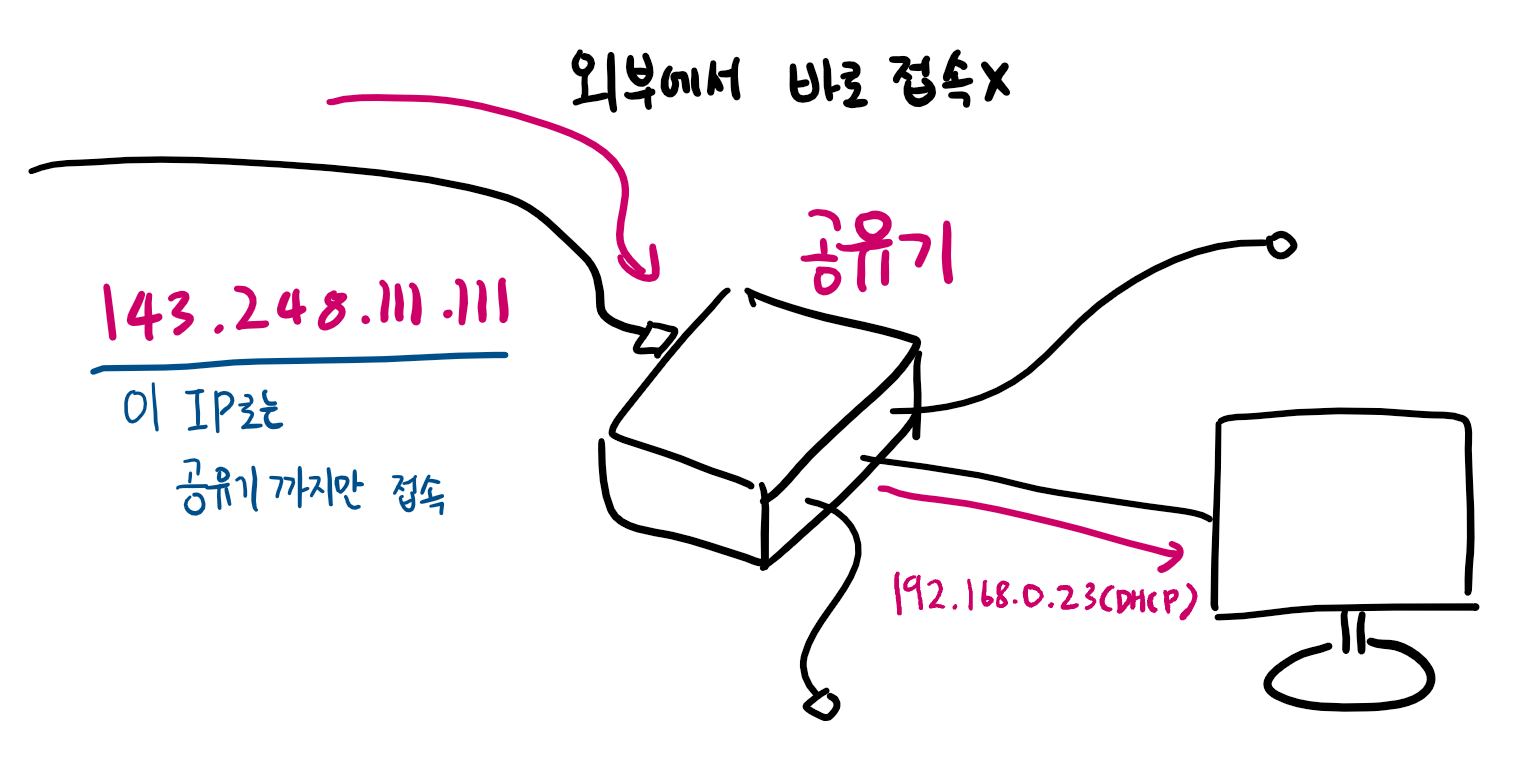 외부에서 바로 접속X
공유기
143.248.111.111
이 IP로는
공유기 까지만 접속
192.168.0.23(DHCP)